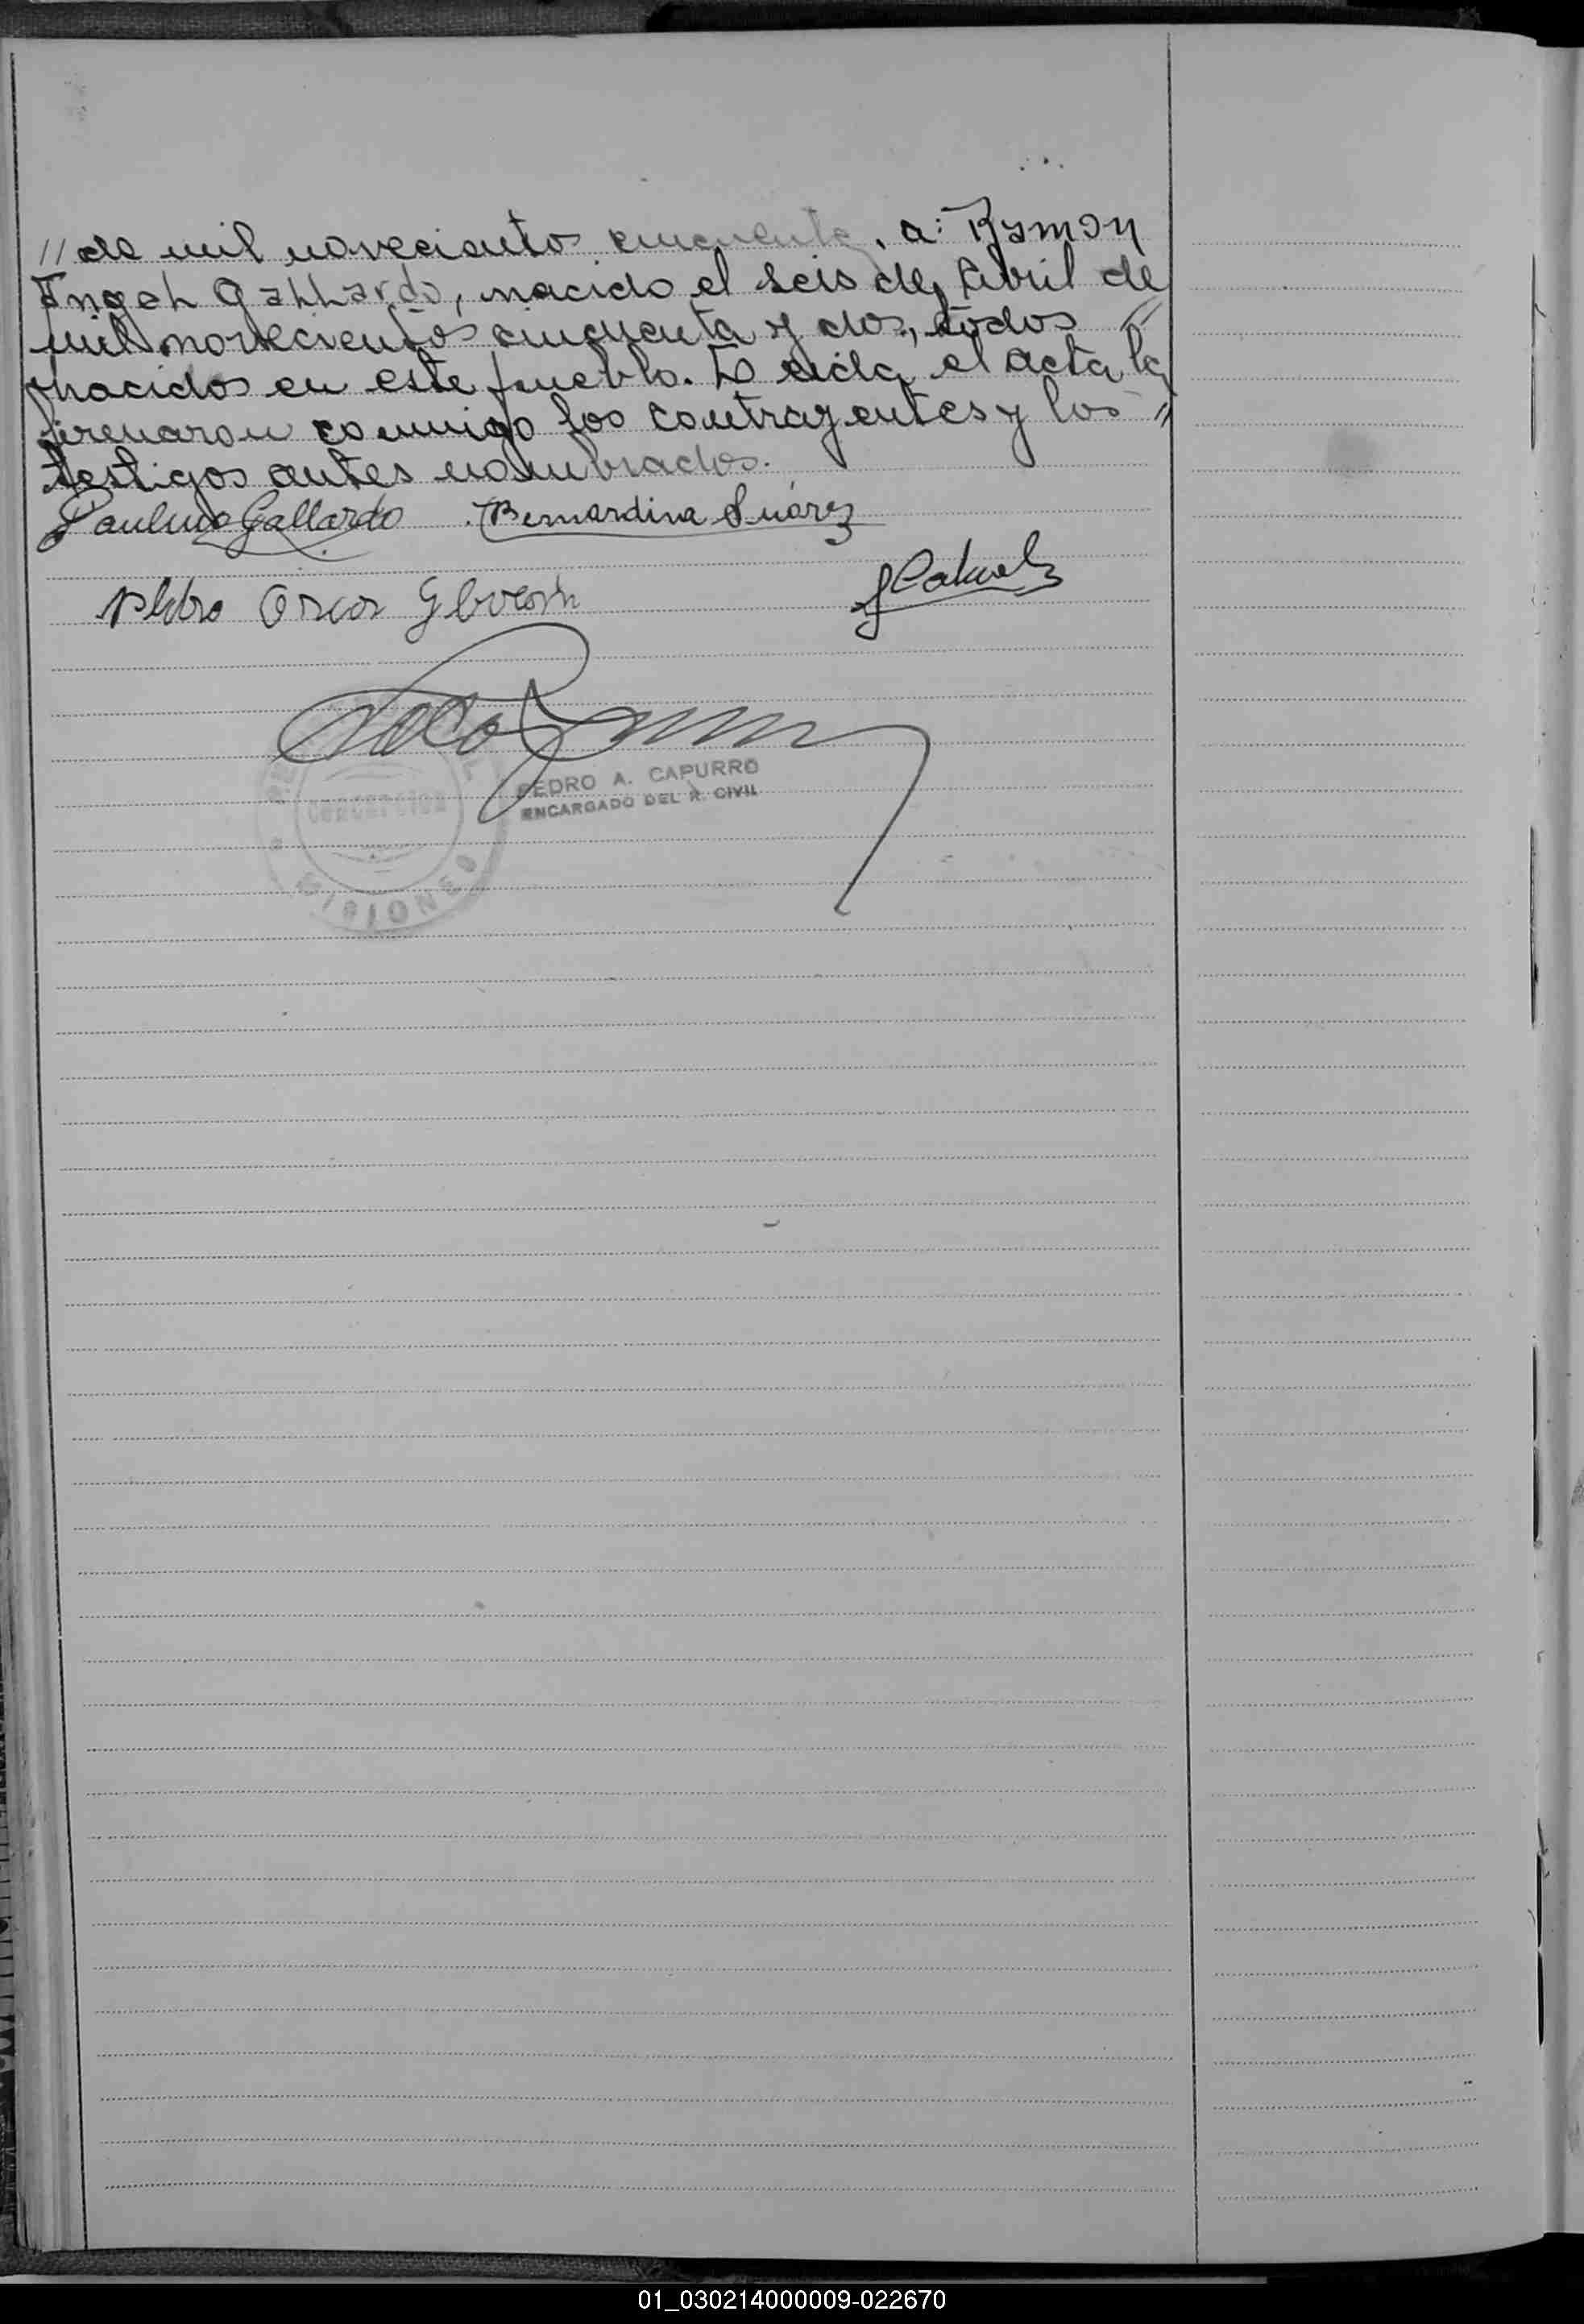 // de mil novecientos cincuenta, a: Ramon
Angel Gallardo, nacido el seis de Abril de
mil novecientos cincuenta y dos, todos //
nacidos en este pueblo. Leida el acta la
firmaron conmigo los contrayentes y los //
testigos antes nombrados.
Paulino Gallardo Bernardina Suárez
Pedro Oscar
PEDRO A. CAPURRO
ENCARGADO DEL R. CIVIL
Concepcion
MISIONES
01_030214000009-022670